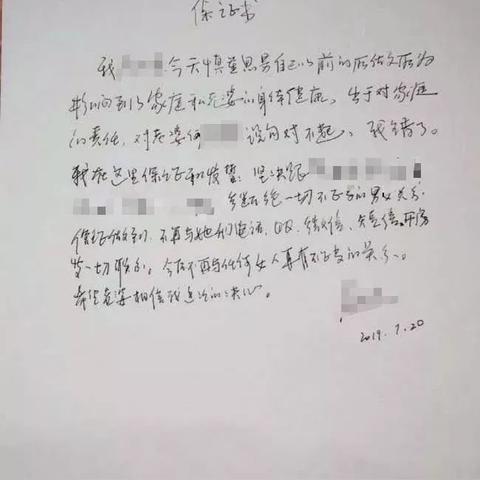 保证书
我 今天慎重思易自己以前的所作所为
影响到了家庭和老婆的身体健康。出于对家庭
的责任,对老婆何 说句对不起,我错了。
我在这里保证和发誓:坚决跟
断绝一切不正当的男女关系.
保证做到,不再与她们电话、QQ、微信、短信、开房
等一切联系。今后不再与任何女人再有不正当的关系。
希望老婆相信我这次的决心。
2019.7.20